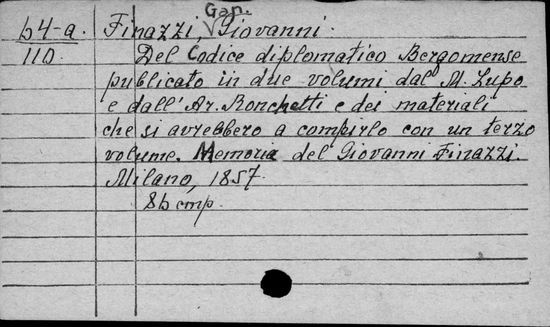 b4-a. Finazzi, Can. Giovanni.
110. Del Codice diplomatico Bergomense
publicato in due volumi dal M. Lupo
e dall' Ar. Ronchetti e dei materiali
che si avrebbero a compirlo con un terzo
volume. Memoria del Giovanni Finazzi.
Milano, 1857.